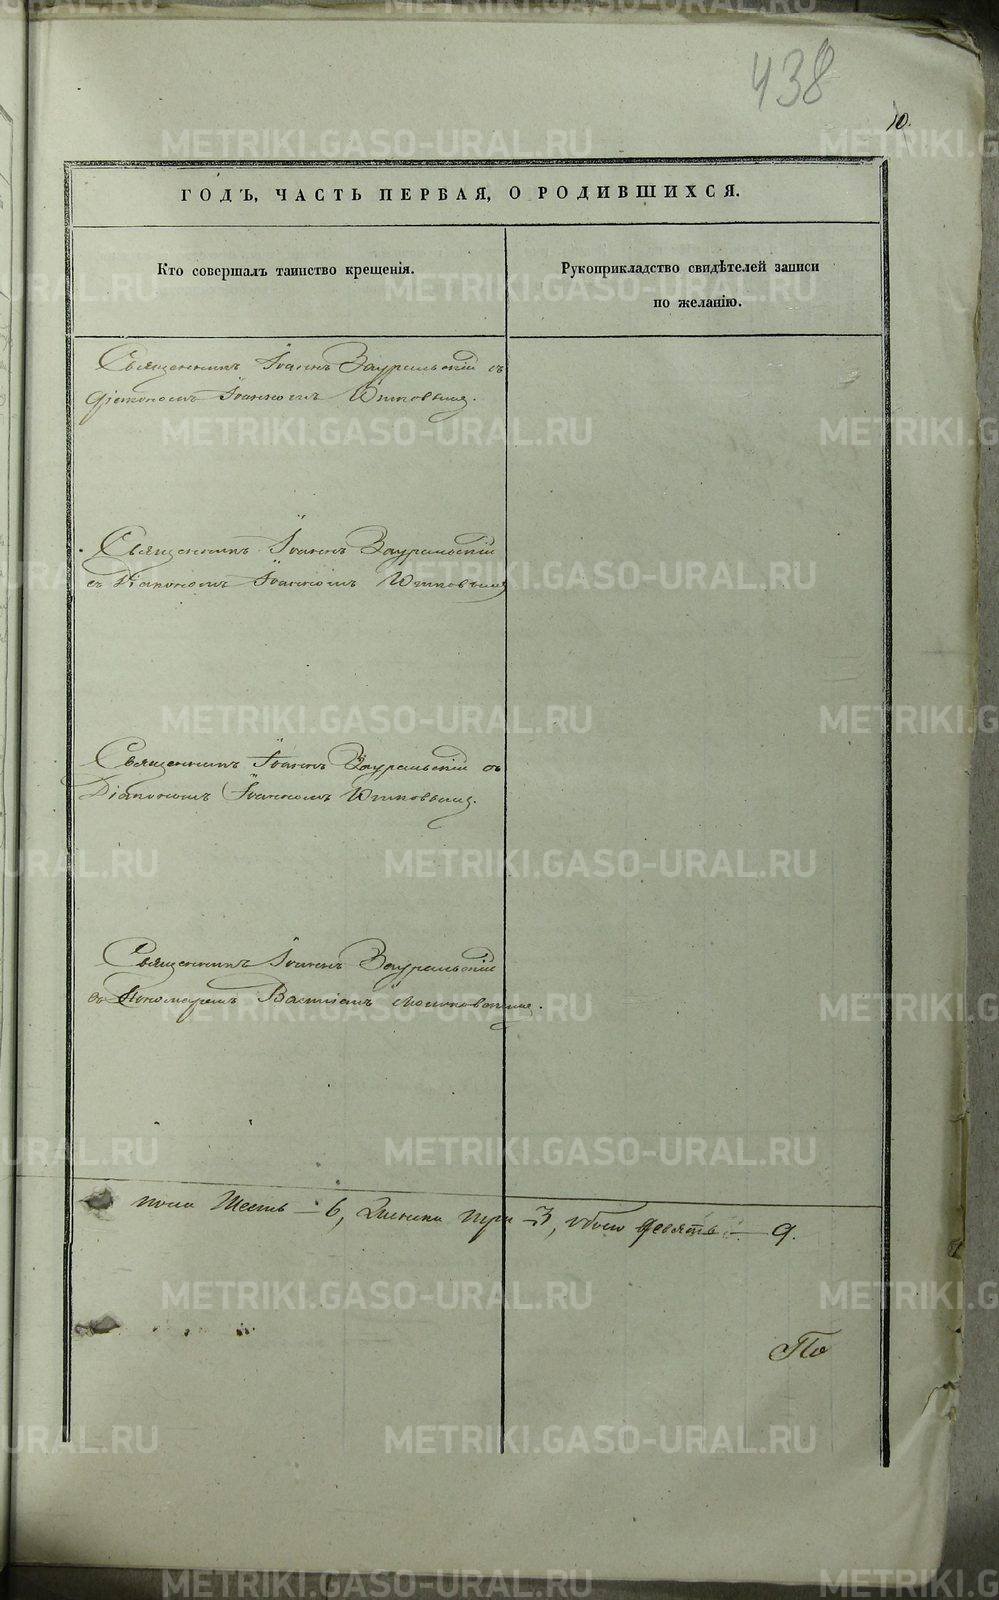 438
10.
ГОДЪ, ЧАСТЬ ПЕРВАЯ, О РОДИВШИХСЯ.
Кто совершалъ таинство крещенія.
Рукоприкладство свидѣтелей записи
по желанію.
Священникъ Іоаннъ Зауральскій съ
діакономъ Іоанномъ
Священникъ Іоаннъ Зауральскій
съ Діакономъ Іоанномъ
Священникъ Іоаннъ Зауральскій съ
Діакономъ Іоанномъ
Священникъ Іоаннъ Зауральскій
съ Пономаремъ
пола Шесть – 6, Женска три – 3, обоего девять – 9.
По
METRIKI.GASO-URAL.RU